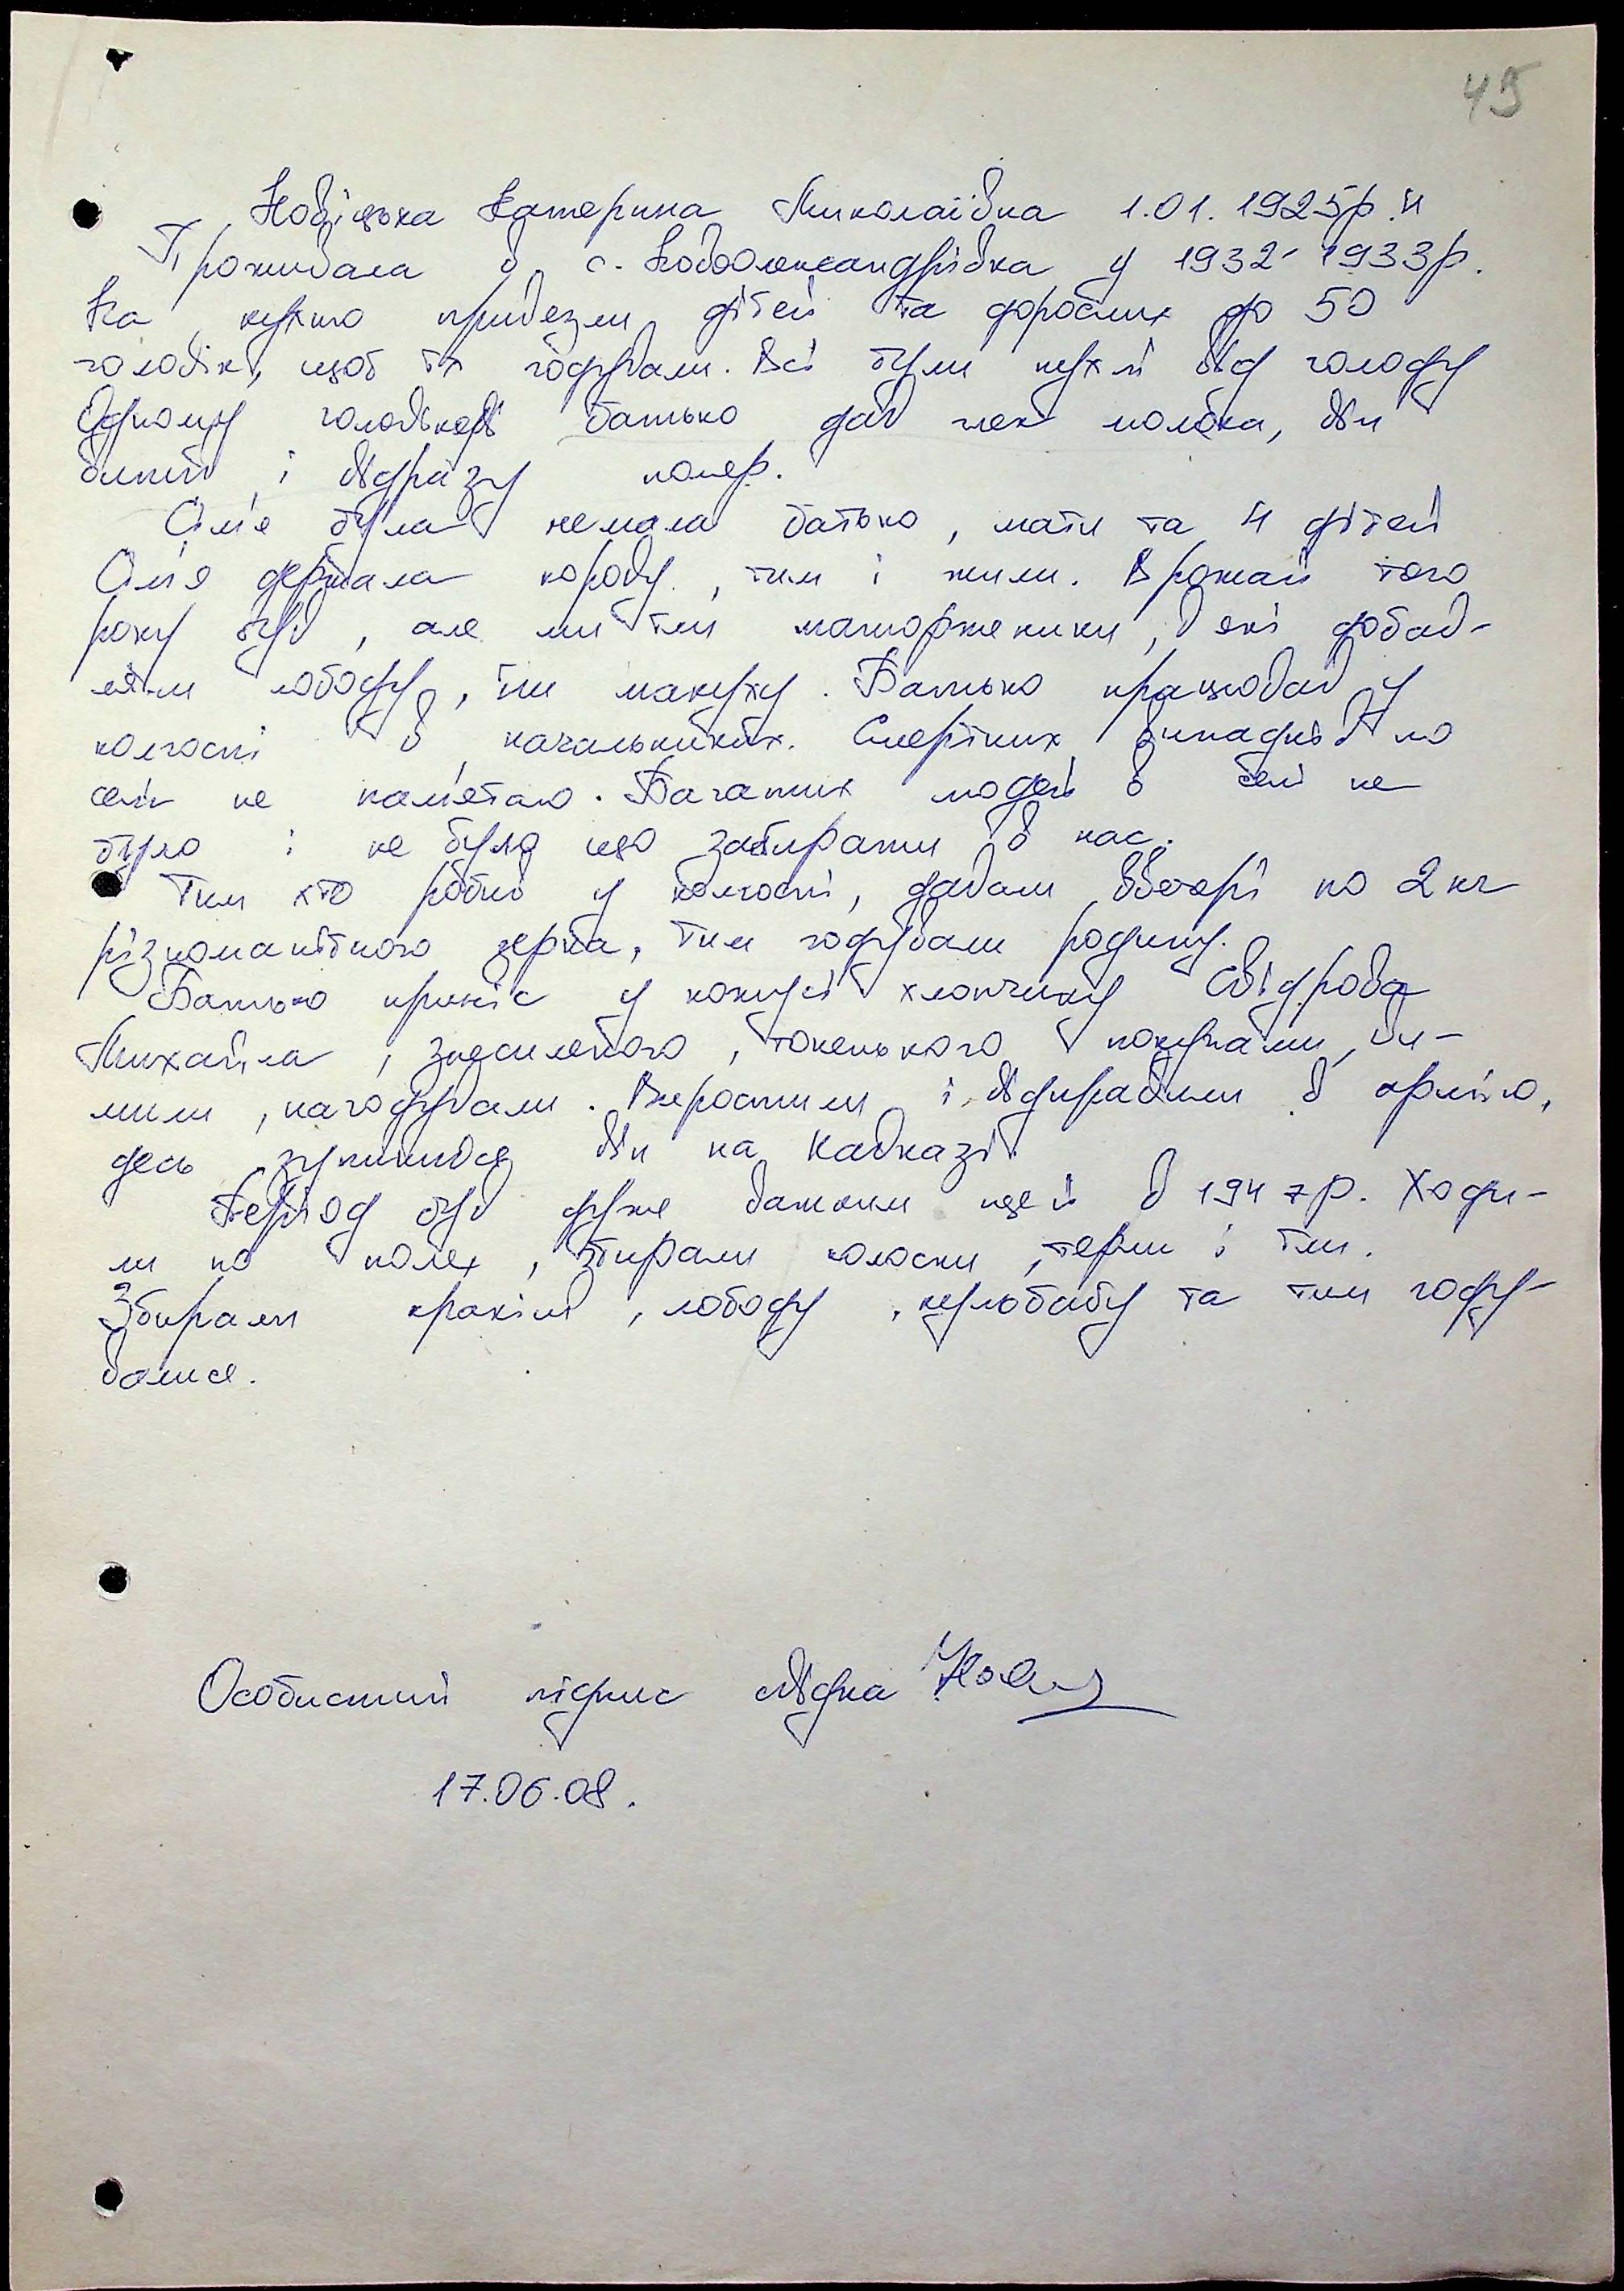 45
Новіцька Катерина Миколаївна 1.01.1925р.н
Проживала в с. Новоолександрівка у 1932-1933р.
На кухню привезли дітей та дорослих до 50
чоловік, щоб їх годували. Всі були пухлі від голоду
Одному чоловікові батько дав глек молока, він
випив і відразу помер.
Сім'я була немала батько, мати та 4 дітей
Сім'я держала корову, тим і жили. Врожай того
року був, але ми їли маторженики, в які добав-
ляли лободу, їли макуху. Батько працював у
колгоспі в начальниках. Смертних випадків по
селу не пам'ятаю. Багатих людей в селі не
було і не було що забирати в нас.
Тим хто робив у колгоспі, давали ввечері по 2 кг
різноманітного зерна, тим годували родину.
Батько приніс у кожусі хлопчику Свідрова
Михайла, знесиленого, тоненького, покупали, ви-
мили, нагодували. Виростили і відправили в армію,
десь зупинився він на Кавказі.
Період був дуже важким цей в 1947р. Ходи-
ли по полях, збирали колоски, терли і їли.
Збирали кропиву, лободу, кульбабу та тим году-
валися.
Особистий підпис свідка
17.06.08.